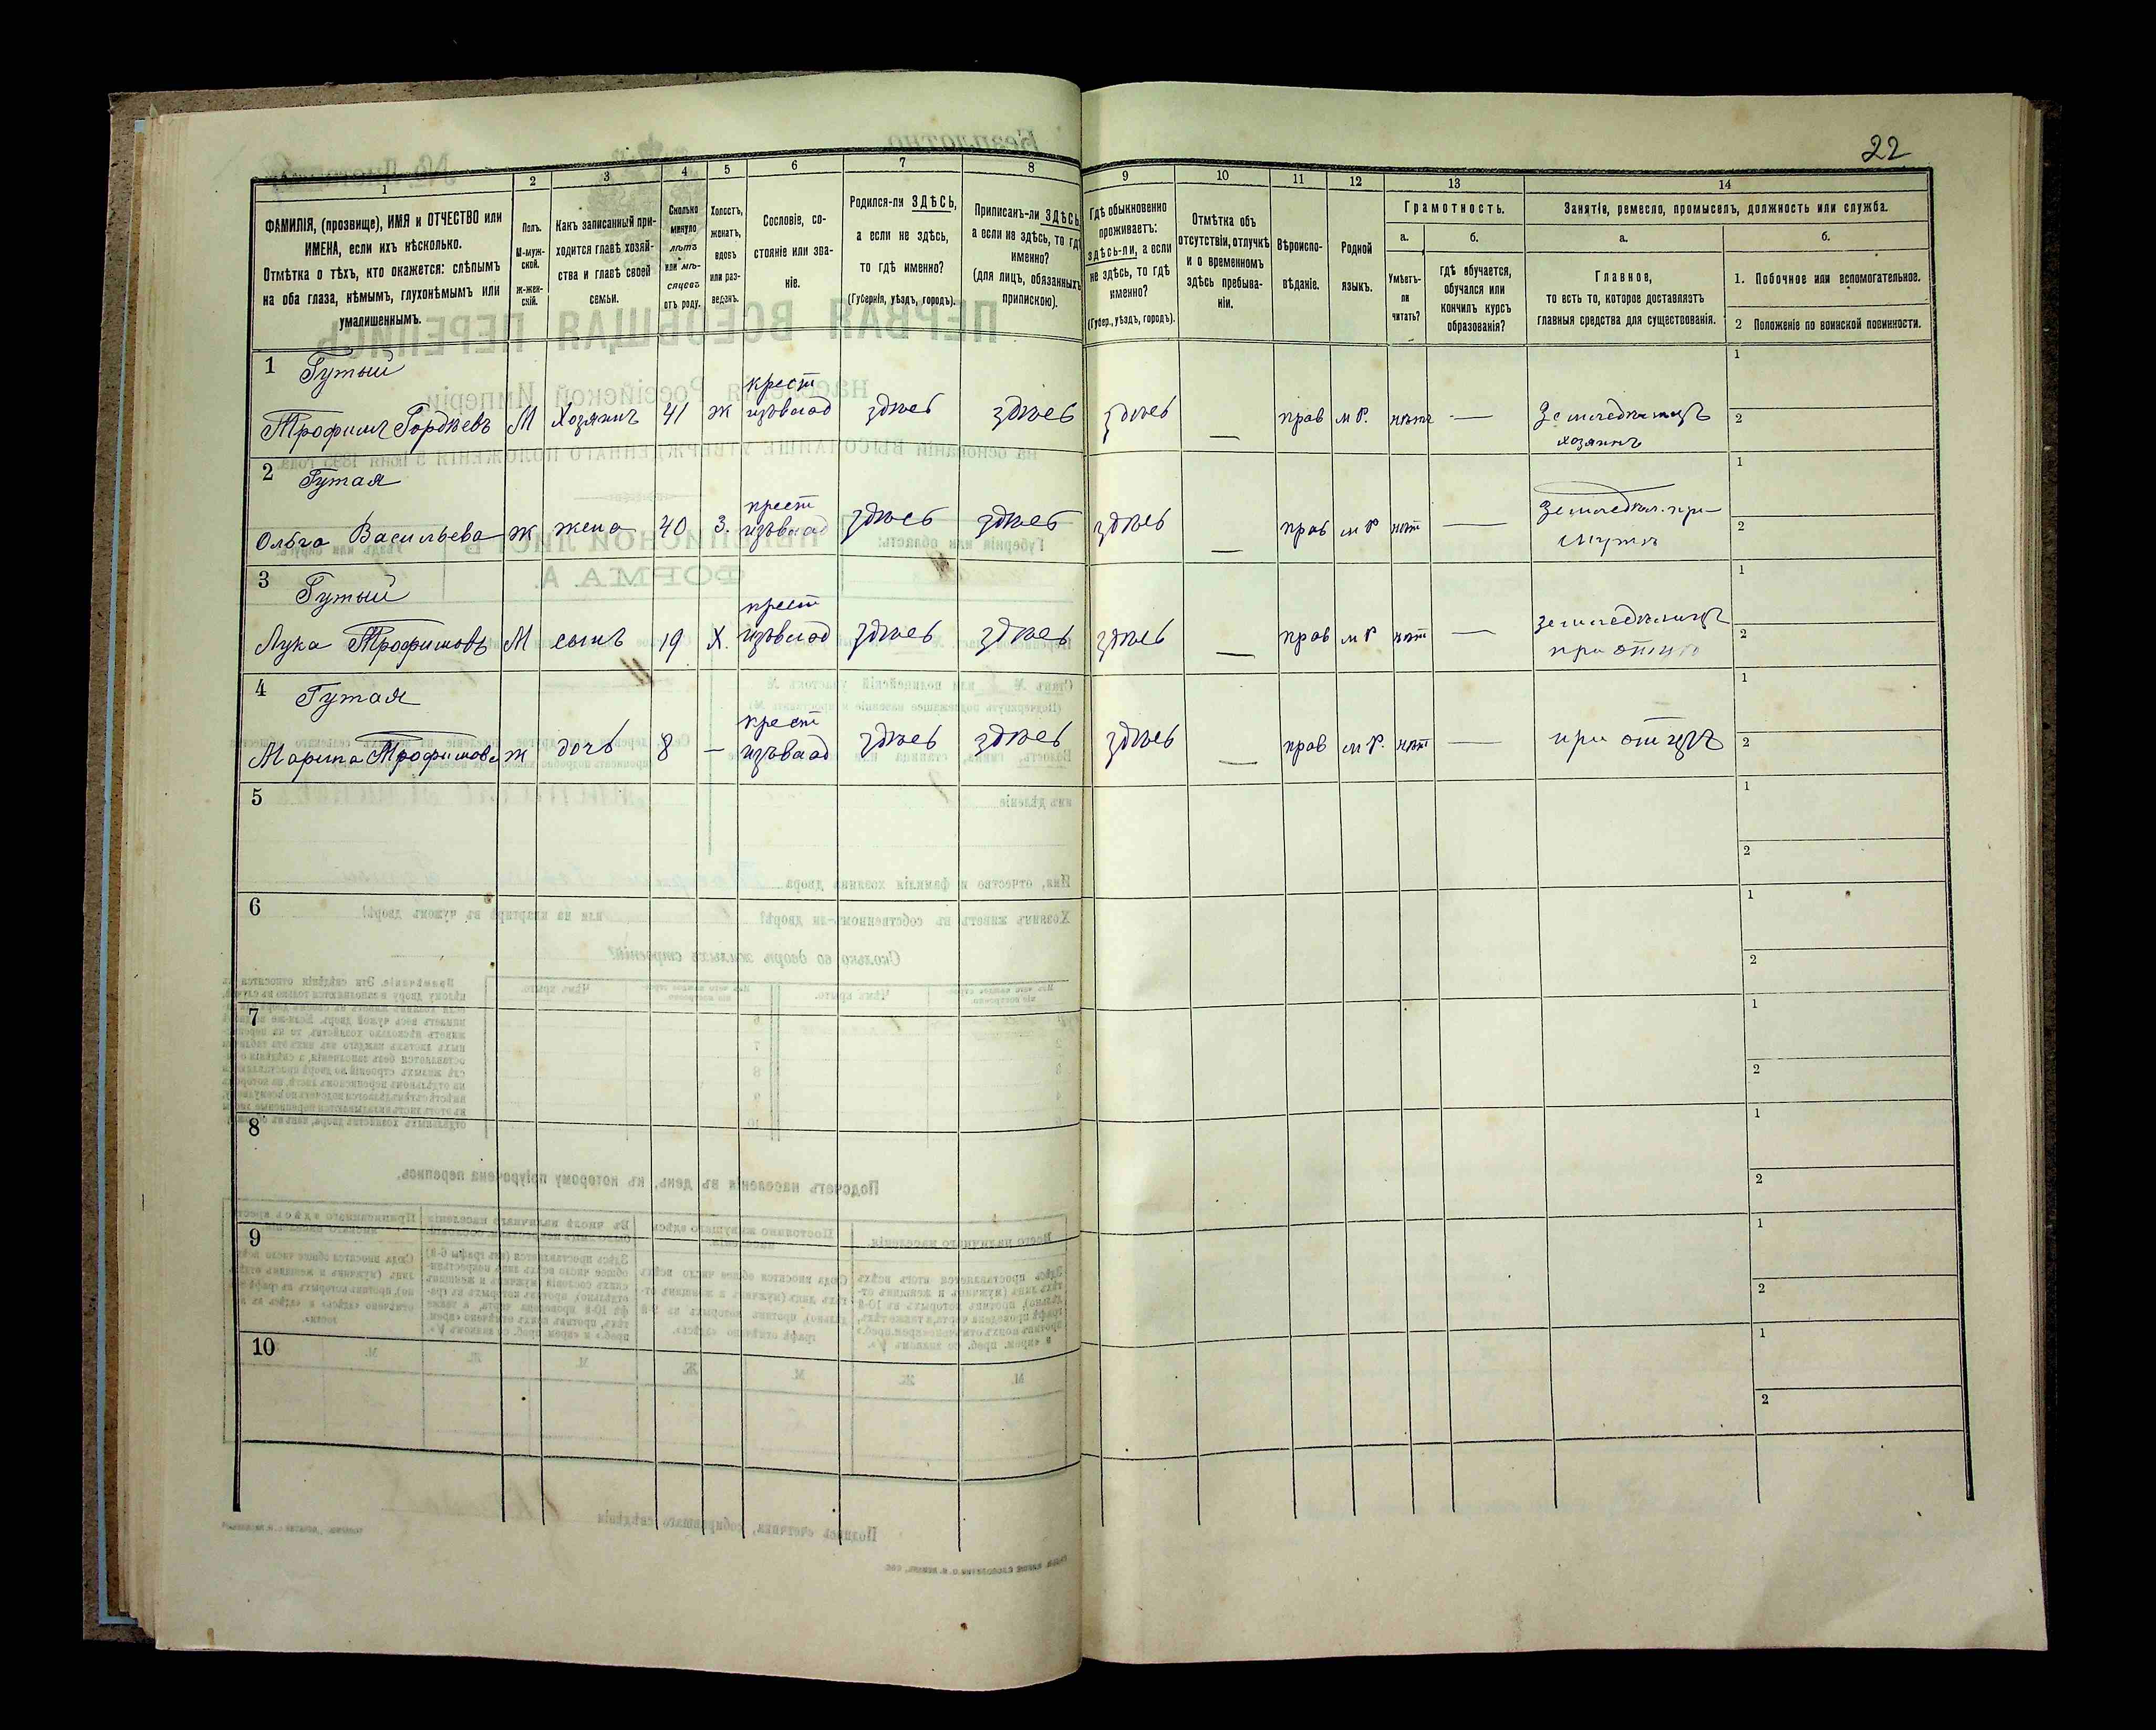 22
1
2
3
4
5
6
7
8
9
10
11
12
13
14
ФАМИЛІЯ, (прозвище), ИМЯ и ОТЧЕСТВО или
ИМЕНА, если ихъ нѣсколько.
Отмѣтка о тѣхъ, кто окажется: слѣпымъ
на оба глаза, нѣмымъ, глухонѣмымъ или
умалишеннымъ.
Полъ.
М-муж-
ской.
Ж-жен-
скій.
Какъ записанный при-
ходится главѣ хозяй-
ства и главѣ своей
семьи.
Сколько
минуло
лѣтъ
или мѣ-
сяцевъ
отъ роду.
Холостъ,
женатъ,
вдовъ
или раз-
веденъ.
Сословіе, со-
стояніе или зва-
ніе.
Родился-ли ЗДѢСЬ,
а если не здѣсь,
то гдѣ именно?
(Губернія, уѣздъ, городъ).
Приписанъ-ли ЗДѢСЬ,
а если не здѣсь, то гдѣ
именно?
(для лицъ, обязанныхъ
припискою).
Гдѣ обыкновенно
проживаетъ:
здѣсь-ли, а если
не здѣсь, то гдѣ
именно?
(Губер., уѣздъ, городъ).
Отмѣтка объ
отсутствіи, отлучкѣ
и о временномъ
здѣсь пребыва-
ніи.
Вѣроиспо-
вѣданіе.
Родной
языкъ.
Грамотность.
а.
б.
Умѣетъ-
ли
читать?
гдѣ обучается,
обучался или
кончилъ курсъ
образованія?
Занятіе, ремесло, промыселъ, должность или служба.
а.
б.
Главное,
то есть то, которое доставляетъ
главныя средства для существованія.
1. Побочное или вспомогательное.
2 Положеніе по воинской повинности.
1 Гутый
Трофимъ Гордѣевъ М Хозяинъ 41 ж крест
изъ влад здѣсь здѣсь здѣсь — прав м Р. нѣтъ — Земледѣлецъ
хозяинъ
1
2
2 Гутая
Ольга Васильева ж жена 40 З. крест
изъ влад здѣсь здѣсь здѣсь — прав м Р нѣт — Земледѣл. при
мужѣ
1
2
3 Гутый
Лука Трофимовъ М сынъ 19 Х. крест
изъ влад здѣсь здѣсь здѣсь — прав м Р нѣт — земледѣлецъ
при отцѣ
1
2
4 Гутая
Марина Трофимова ж дочь 8 — крест
изъ влад здѣсь здѣсь здѣсь — прав м Р. нѣт — при отцѣ
1
2
5
1
2
6
1
2
7
1
2
8
1
2
9
1
2
10
1
2